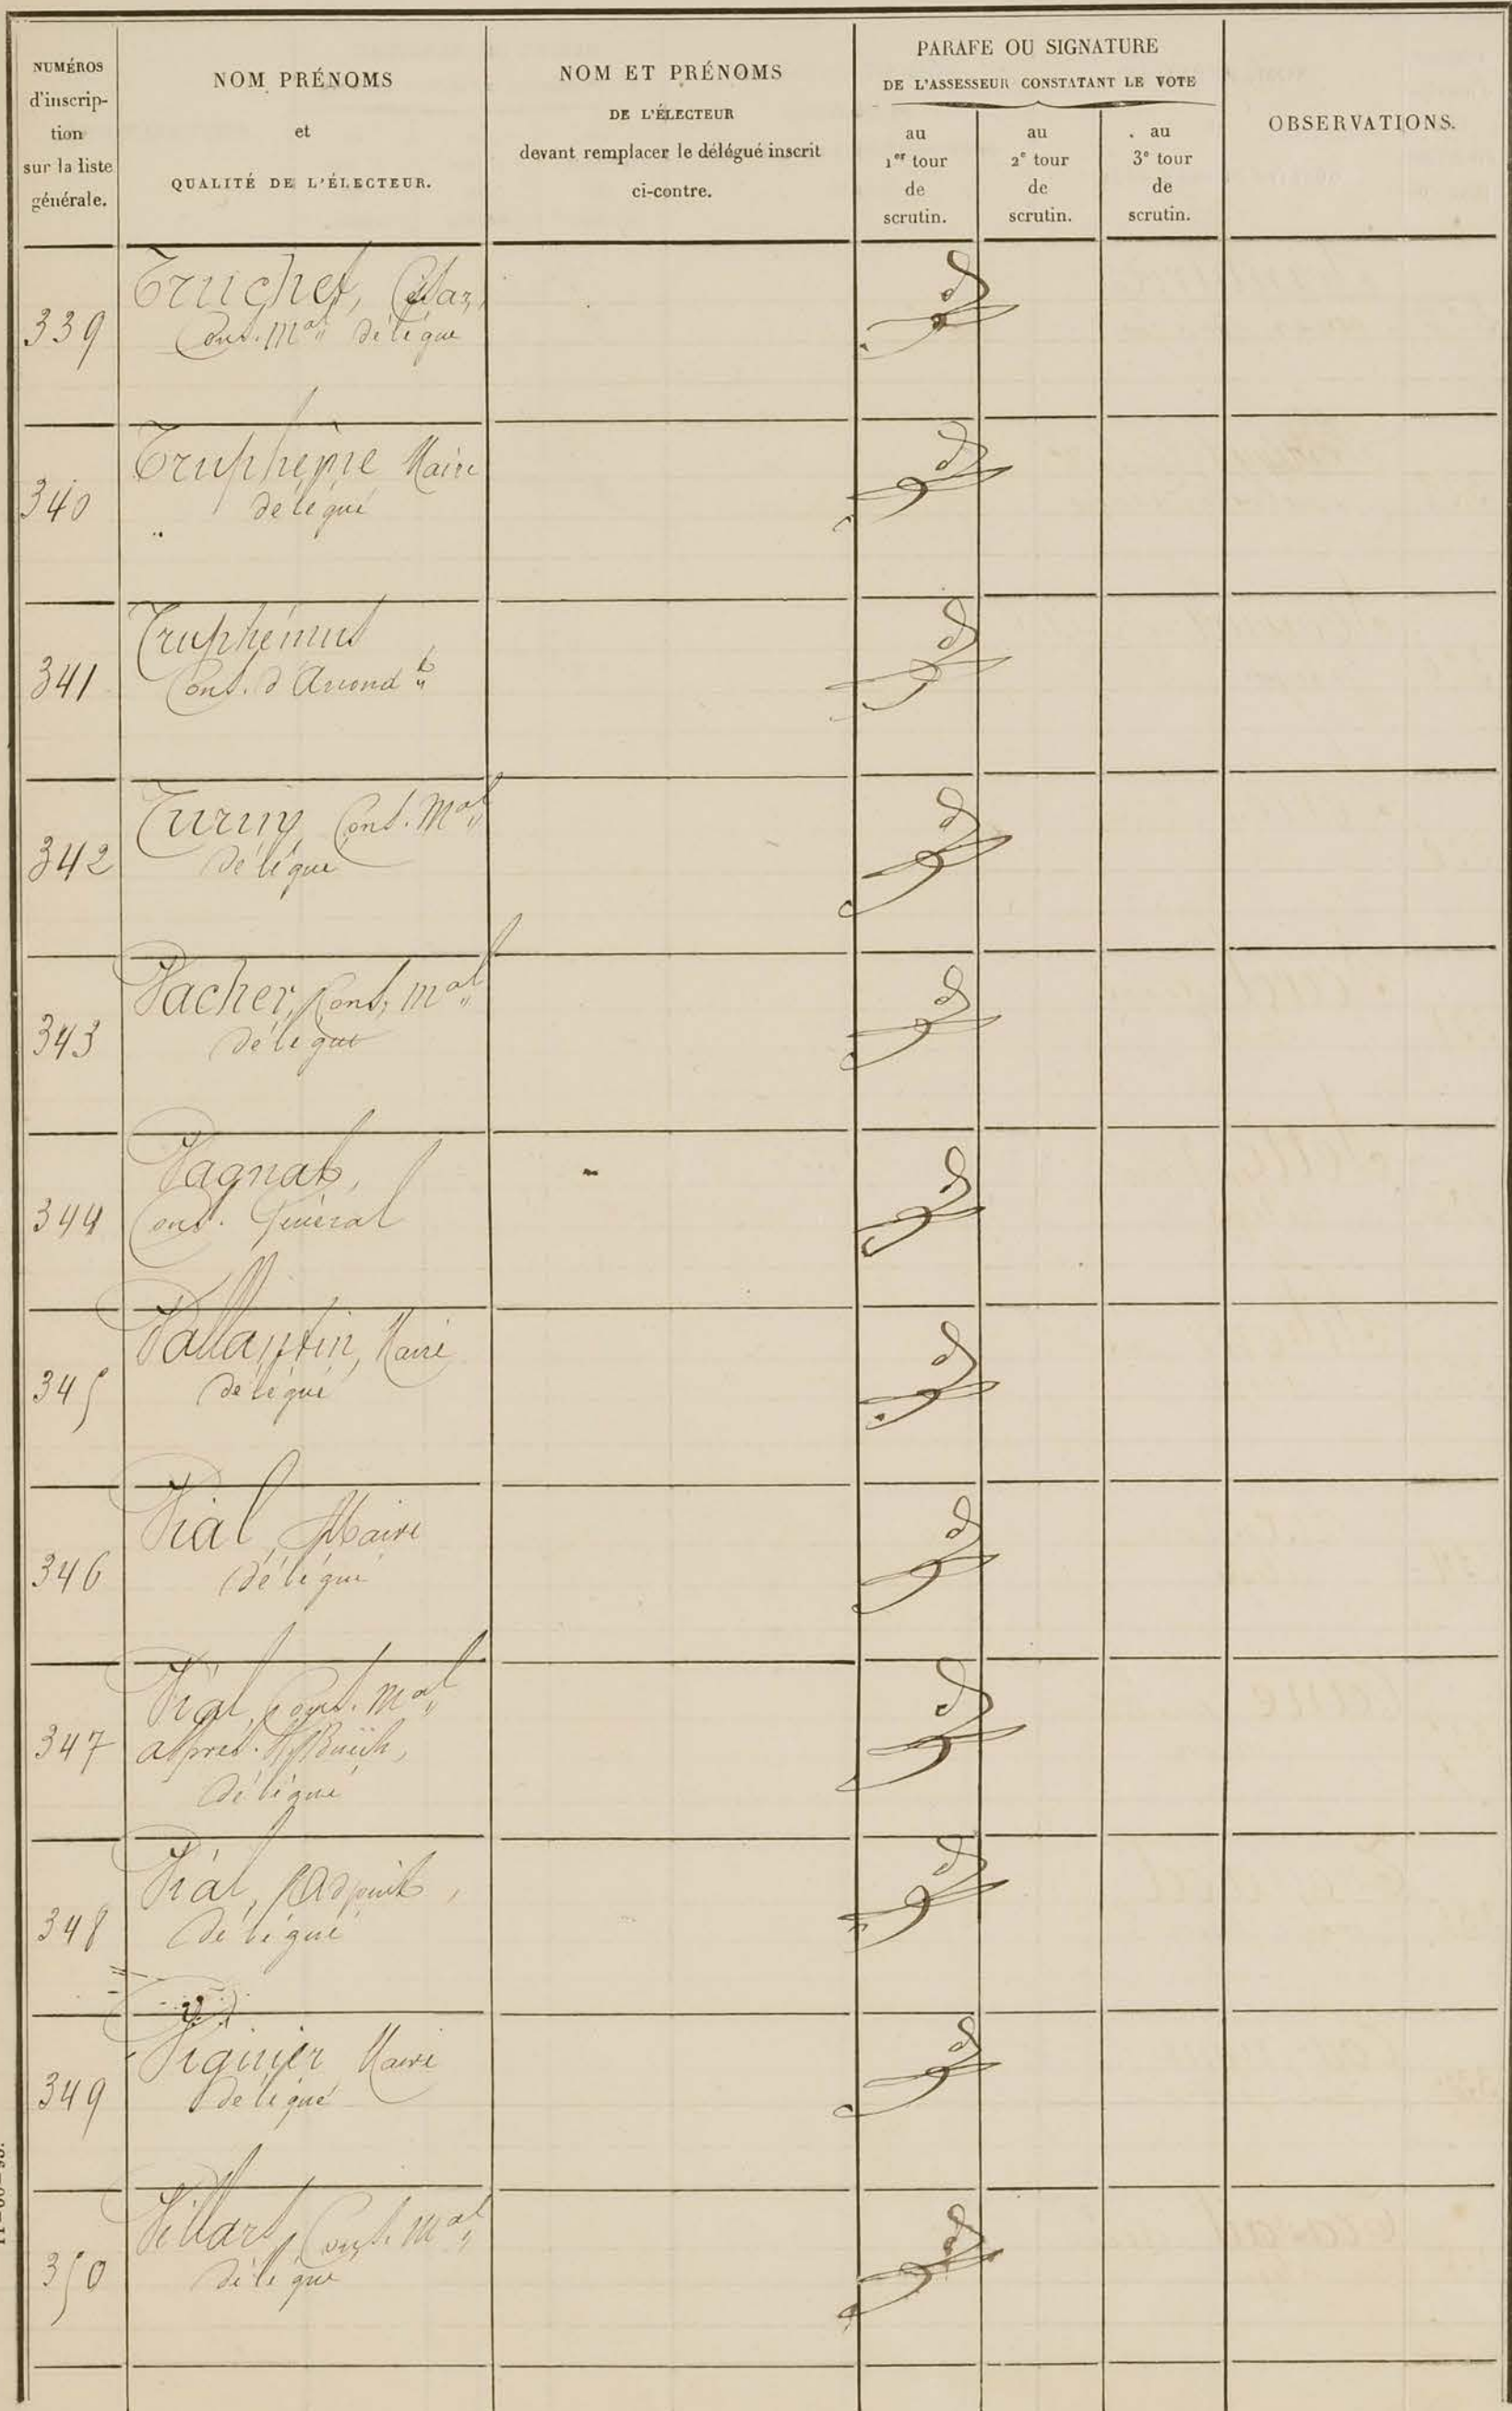 NUMÉROS
d'inscrip-
tion
sur la liste
générale.
NOM PRÉNOMS
et
QUALITÉ DE L'ÉLECTEUR.
NOM ET PRÉNOMS
DE L'ÉLECTEUR
devant remplacer le délégué inscrit
ci-contre.
PARAFE OU SIGNATURE
DE L'ASSESSEUR CONSTATANT LE VOTE
au
1er tour
de
scrutin.
au
2e tour
de
scrutin.
au
3e tour
de
scrutin.
OBSERVATIONS.
Truchet,
339 Cons. Mal délégué
Truphème Maire
340 délégué
Truphémus
341 Cons. d'Arrondt
Turin Cons. Mal
342 délégué
Vacher, Cons, Mal
343 délégué
Vagnat,
344 Cons. Général
Vallantin, Maire
345 délégué
Vial, Maire
346 délégué
Vial, Cons. Mal
347
délégué
Vial, Adjoint,
348 délégué
Viguier Maire
349 délégué
Villard, Cons. Mal
350 délégué